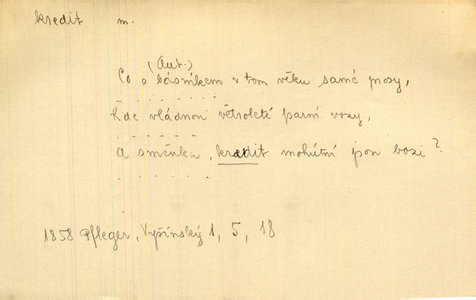 kredit m.
(Aut.)
Co s básníkem v tom věku samé prosy,
. . . . . .
kde vládnou větroleté parní vozy,
. . . . . .
a směnka, kredit mohútní jsou bozi?
. . . . . .
1858 Pfleger, Vyšínský 1, 5, 18